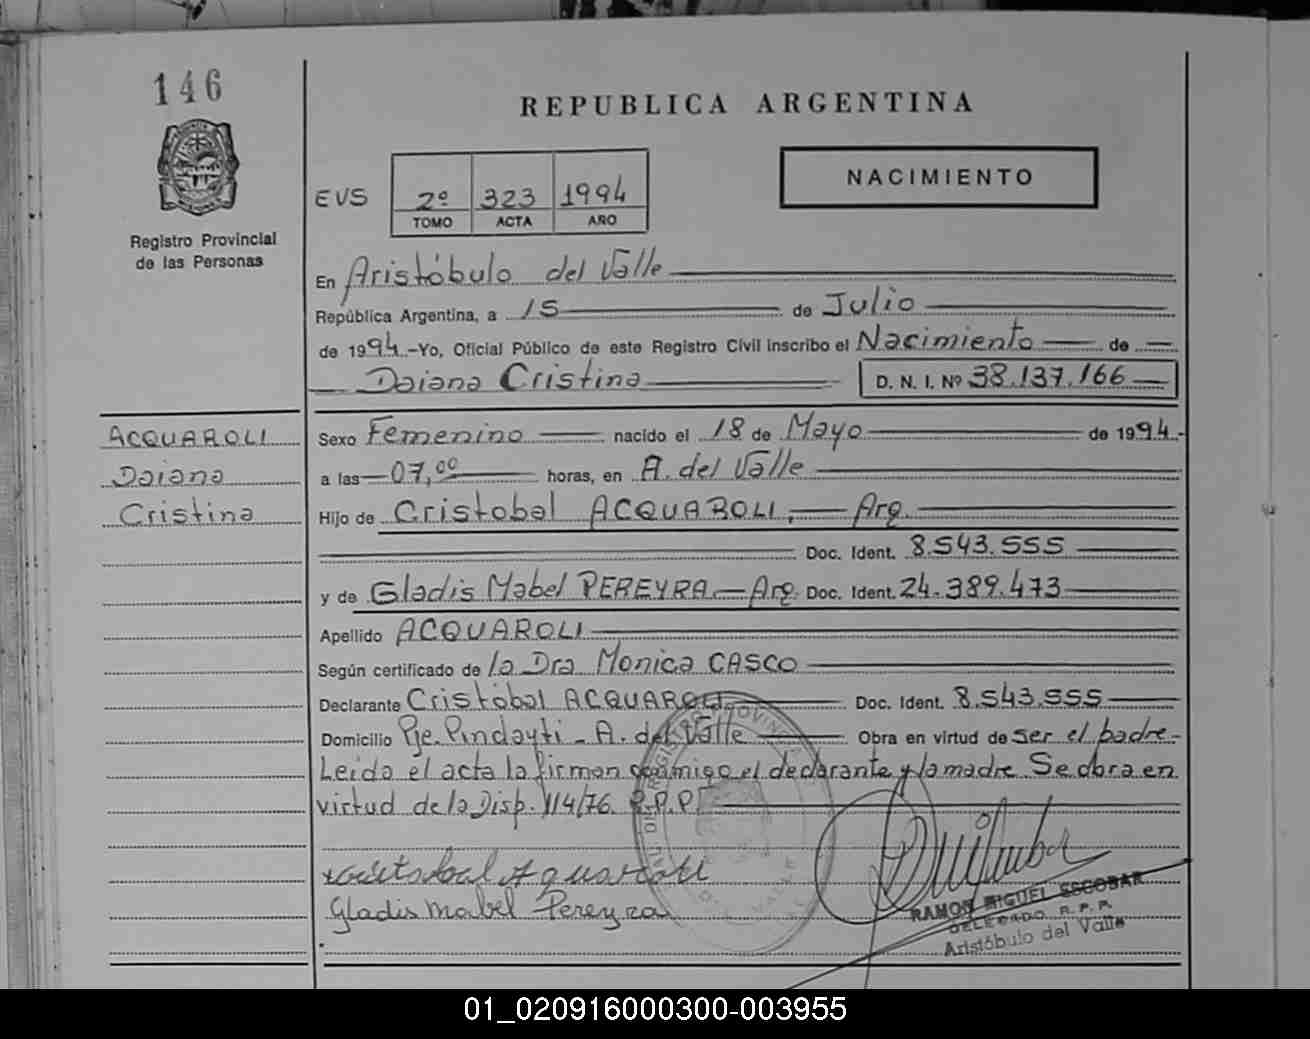 146
REPUBLICA ARGENTINA
NACIMIENTO
EVS 2º 323 1994
TOMO ACTA AÑO
Registro Provincial
de las Personas
En Aristóbulo del Valle
República Argentina, a 15 de Julio
de 1994.-Yo, Oficial Público de este Registro Civil inscribo el Nacimiento de
Daiana Cristina D. N. I. Nº 38.137.166
ACQUAROLI
Daiana
Cristina
Sexo Femenino nacido el 18 de Mayo de 1994.-
a las 07,00 horas, en A. del Valle
Hijo de Cristobal ACQUAROLI, Arg.
Doc. Ident. 8.543.555
y de Gladis Mabel PEREYRA.- Arg. Doc. Ident. 24.389.473
Apellido ACQUAROLI
Según certificado de la Dra Monica CASCO
Declarante Cristóbal ACQUAROLI Doc. Ident. 8.543.555
Domicilio Pje. Pindayti - A. del Valle Obra en virtud de ser el padre-
Leida el acta la firman conmigo el declarante y la madre. Se obra en
virtud de la Disp. 114/76. R.P.P.
Gladis Mabel Pereyra
RAMON MIGUEL ESCOBAR
DELEGADO R. P. P.
Aristóbulo del Valle
01_020916000300-003955